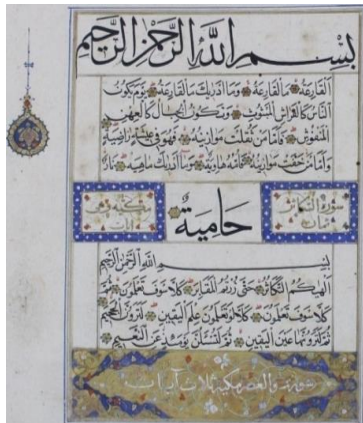 بسم الله الرحمن الرحيم
القارعة ما القارعة وما ادريك ما القارعة يوم يكون
الناس كالفراش المبثوث وتكون الجبال كالعهن
المنفوش فاما من ثقلت موازينه فهو في عيشة راضية
واما من خفت موازينه فامه هاوية وما ادريك ماهيه نار
سورة التكاثر
ثمان
حامية
مكية
آيات
بسم الله الرحمن الرحيم
الهيكم التكاثر حتى زرتم المقابر كلا سوف تعلمون ثم
كلا سوف تعلمون كلا لو تعلمون علم اليقين لترون الجحيم
ثم لترونها عين اليقين ثم لتسئلن يومئذ عن النعيم
سورة والعصر مكية ثلاث آيات